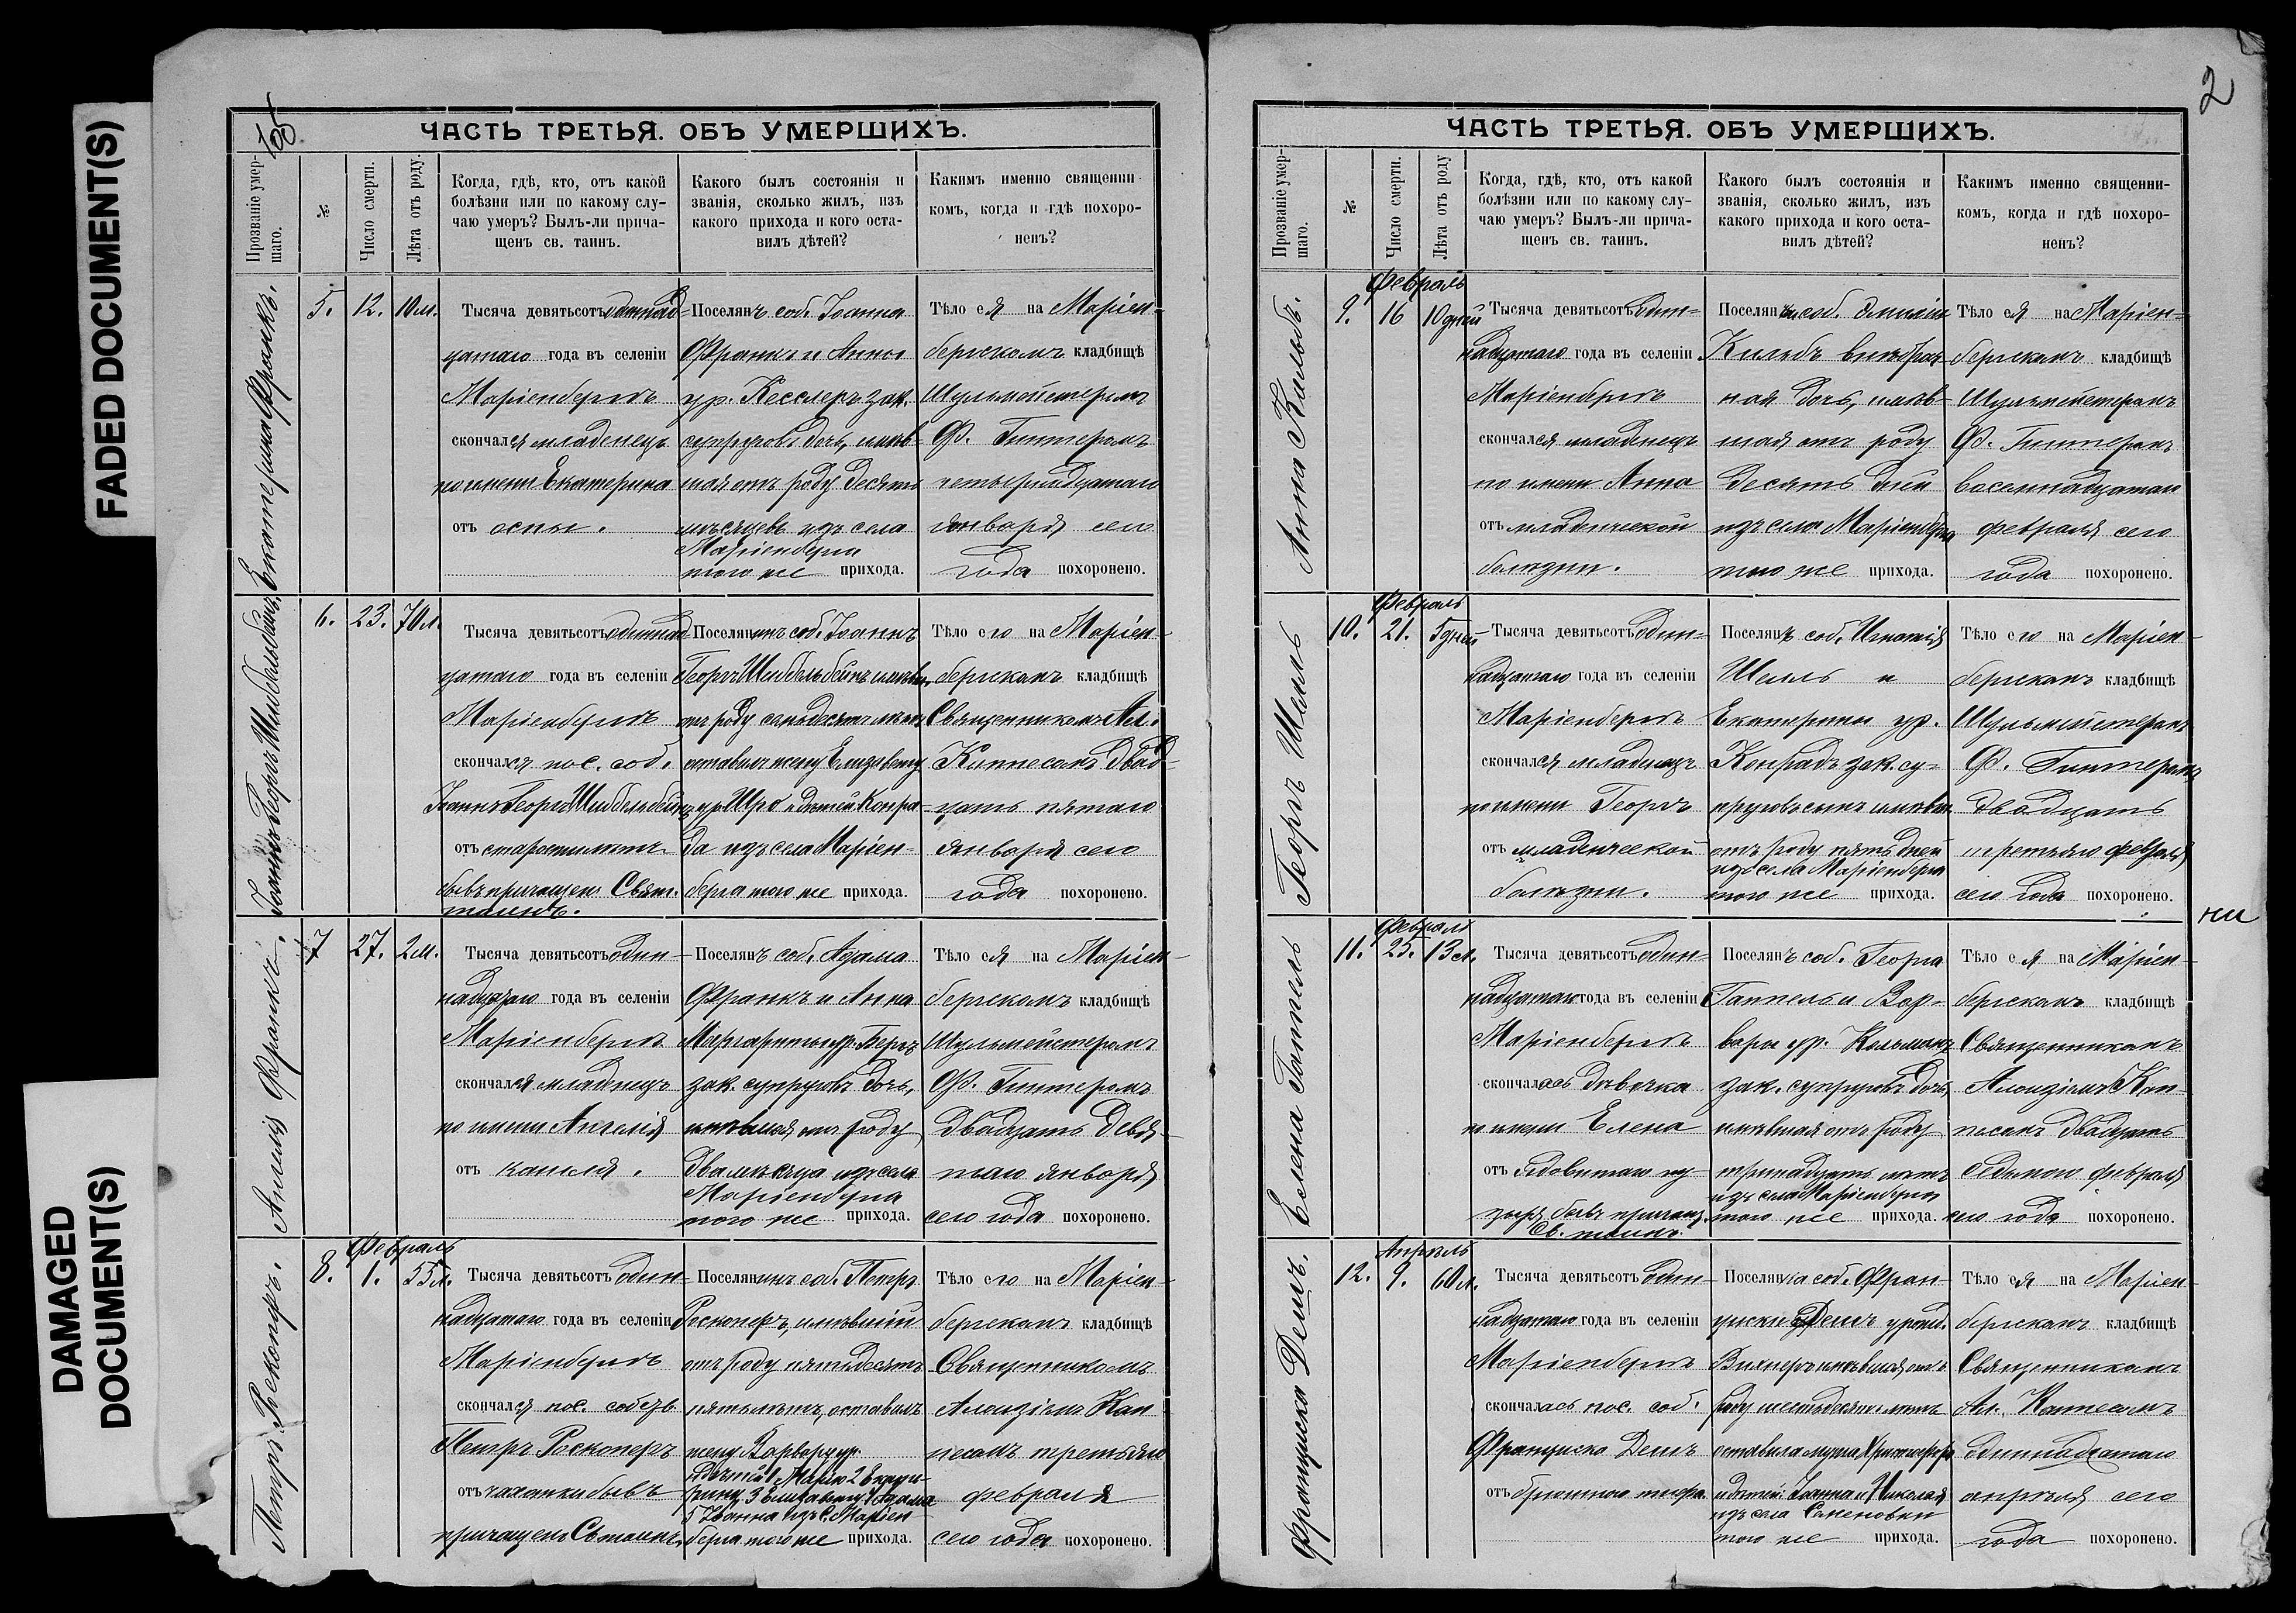 FADED DOCUMENT(S)
DAMAGED
DOCUMENT(S)
ЧАСТЬ ТРЕТЬЯ. ОБЪ УМЕРШИХЪ.
Прозваніе умер-
шаго.
№
Число смерти.
Лѣта отъ роду.
Когда, гдѣ, кто, отъ какой
болѣзни или по какому слу-
чаю умеръ? Былъ-ли прича-
щенъ св. таинъ.
Какого былъ состоянія и
званія, сколько жилъ, изъ
какого прихода и кого оста-
вилъ дѣтей?
Какимъ именно священни-
комъ, когда и гдѣ похоро-
ненъ?
Екатерина Франкъ.
5. 12. 10 м.
Тысяча девятьсотъ одиннад-
цатаго года въ селеніи
Маріенбергъ
скончался младенецъ
по имени Екатерина
отъ оспы.
Поселянъ соб. Іоанна
Франкъ и Анны
ур. Кесслеръ зак.
супруговъ дочь, имѣв-
шая отъ роду десять
мѣсяцевъ изъ села
Маріенберга
того же прихода.
Тѣло ея на Маріен-
бергскомъ кладбищѣ
Шульмейстеромъ
Ф. Гинтеромъ
четырнадцатаго
января сего
года похоронено.
Іоаннъ Георгъ Шиббельбейнъ
6. 23. 70 л.
Тысяча девятьсотъ одиннад-
цатаго года въ селеніи
Маріенбергъ
скончался пос. соб.
Іоаннъ Георгъ Шиббельбейнъ
отъ старости лѣтъ
бывъ причащенъ Свят.
таинъ.
Поселянинъ соб. Іоаннъ
Георгъ Шиббельбейнъ имѣвш.
отъ роду семьдесятъ лѣтъ
оставилъ жену Елизавету
ур. и дѣтей Конра-
да изъ села Маріен-
берга того же прихода.
Тѣло его на Маріен-
бергскомъ кладбищѣ
Священникомъ Ал.
Каппесомъ двад-
цать пятаго
января сего
года похоронено.
Франкъ.
7 27. 2 м.
Тысяча девятьсотъ один-
надцатаго года въ селеніи
Маріенбергъ
скончался младенецъ
по имени
отъ кашля.
Поселянъ соб. Адама
Франкъ и Анна
Маргариты ур. Бергъ
зак. супруговъ дочь,
имѣвшая отъ роду
два мѣсяца изъ села
Маріенберга
того же прихода.
Тѣло ея на Маріен-
бергскомъ кладбищѣ
Шульмейстеромъ
Ф. Гинтеромъ
двадцать девя-
таго января
сего года похоронено.
Петръ Роскопфъ.
Февраль
8. 1. 55 л.
Тысяча девятьсотъ один-
надцатаго года въ селеніи
Маріенбергъ
скончался пос. собств
Петръ Роскопфъ
отъ чахотки бывъ
причащенъ Св таинъ.
Поселянинъ соб. Петръ
Роскопфъ, имѣвшій
отъ роду пятьдесятъ
пять лѣтъ, оставилъ
жену Варвару ур.
дѣтей 1 Марію 2 Екате-
рину 3 Елизавету 4 Адама
5 Іоанна изъ с. Маріен-
берга того же прихода.
Тѣло его на Маріен-
бергскомъ кладбищѣ
Священникомъ
Алоизіемъ Кап-
песомъ третьяго
февраля
сего года похоронено.
2
ЧАСТЬ ТРЕТЬЯ. ОБЪ УМЕРШИХЪ.
Прозваніе умер-
шаго.
№
Число смерти.
Лѣта отъ роду
Когда, гдѣ, кто, отъ какой
болѣзни или по какому слу-
чаю умеръ? Былъ-ли прича-
щенъ св. таинъ.
Какого былъ состоянія и
званія, сколько жилъ, изъ
какого прихода и кого оста-
вилъ дѣтей?
Какимъ именно священни-
комъ, когда и гдѣ похоро-
ненъ?
Анна Кильбъ.
Февраль
9. 16 10 дней
Тысяча девятьсотъ один-
надцатаго года въ селеніи
Маріенбергъ
скончался младенецъ
по имени Анна
отъ младенческой
болѣзни.
Поселянки соб. Емиліи
Кильбъ внѣбрач-
ная дочь, имѣв-
шая отъ роду
десять дней
изъ села Маріенберга
того же прихода.
Тѣло ея на Маріен-
бергскомъ кладбищѣ
Шульмейстеромъ
Ф. Гинтеромъ
восемнадцатаго
февраля сего
года похоронено.
Георгъ Шелль
Февраль
10. 21. 5 дней
Тысяча девятьсотъ один-
надцатаго года въ селеніи
Маріенбергъ
скончался младенецъ
по имени Георгъ
отъ младенческой
болѣзни.
Поселянъ соб. Игнатія
Шелль и
Екатерины ур.
Конрадъ зак. су-
пруговъ сынъ имѣвш.
отъ роду пять дней
изъ села Маріенберга
того же прихода.
Тѣло его на Маріен-
бергскомъ кладбищѣ
Шульмейстеромъ
Ф. Гинтеромъ
двадцать
третьяго февраля
сего года похоронено.
Елена Гаппель
Февраль
11. 25. 13 л.
Тысяча девятьсотъ один-
надцатаго года въ селеніи
Маріенбергъ
скончалась дѣвочка
по имени Елена
отъ ядовитаго пу-
зыря бывъ причащ.
Св. таинъ.
Поселянъ соб. Георга
Гаппель и Вар-
вары ур. Кольманъ
зак. супруговъ дочь,
имѣвшая отъ роду
тринадцать лѣтъ
изъ села Маріенберга
того же прихода.
Тѣло ея на Маріен-
бергскомъ кладбищѣ
Священникомъ
Алоизіемъ Кап-
песомъ двадцать
седьмого февраля
сего года похоронено.
Франциска Дешъ.
Апрѣль
12. 9. 60 л.
Тысяча девятьсотъ один-
надцатаго года въ селеніи
Маріенбергъ
скончалась пос. соб.
Франциска Дешъ
отъ брюшного тифа.
Поселянка соб. Фран-
циска Дешъ урожд.
имѣвшая отъ
роду шестьдесятъ лѣтъ
оставила мужа Христофора
и дѣтей: Іоанна и Николая
изъ села Семеновки
того же прихода.
Тѣло ея на Маріен-
бергскомъ кладбищѣ
Священникомъ
Ал. Каппесомъ
одиннадцатаго
апрѣля сего
года похоронено.